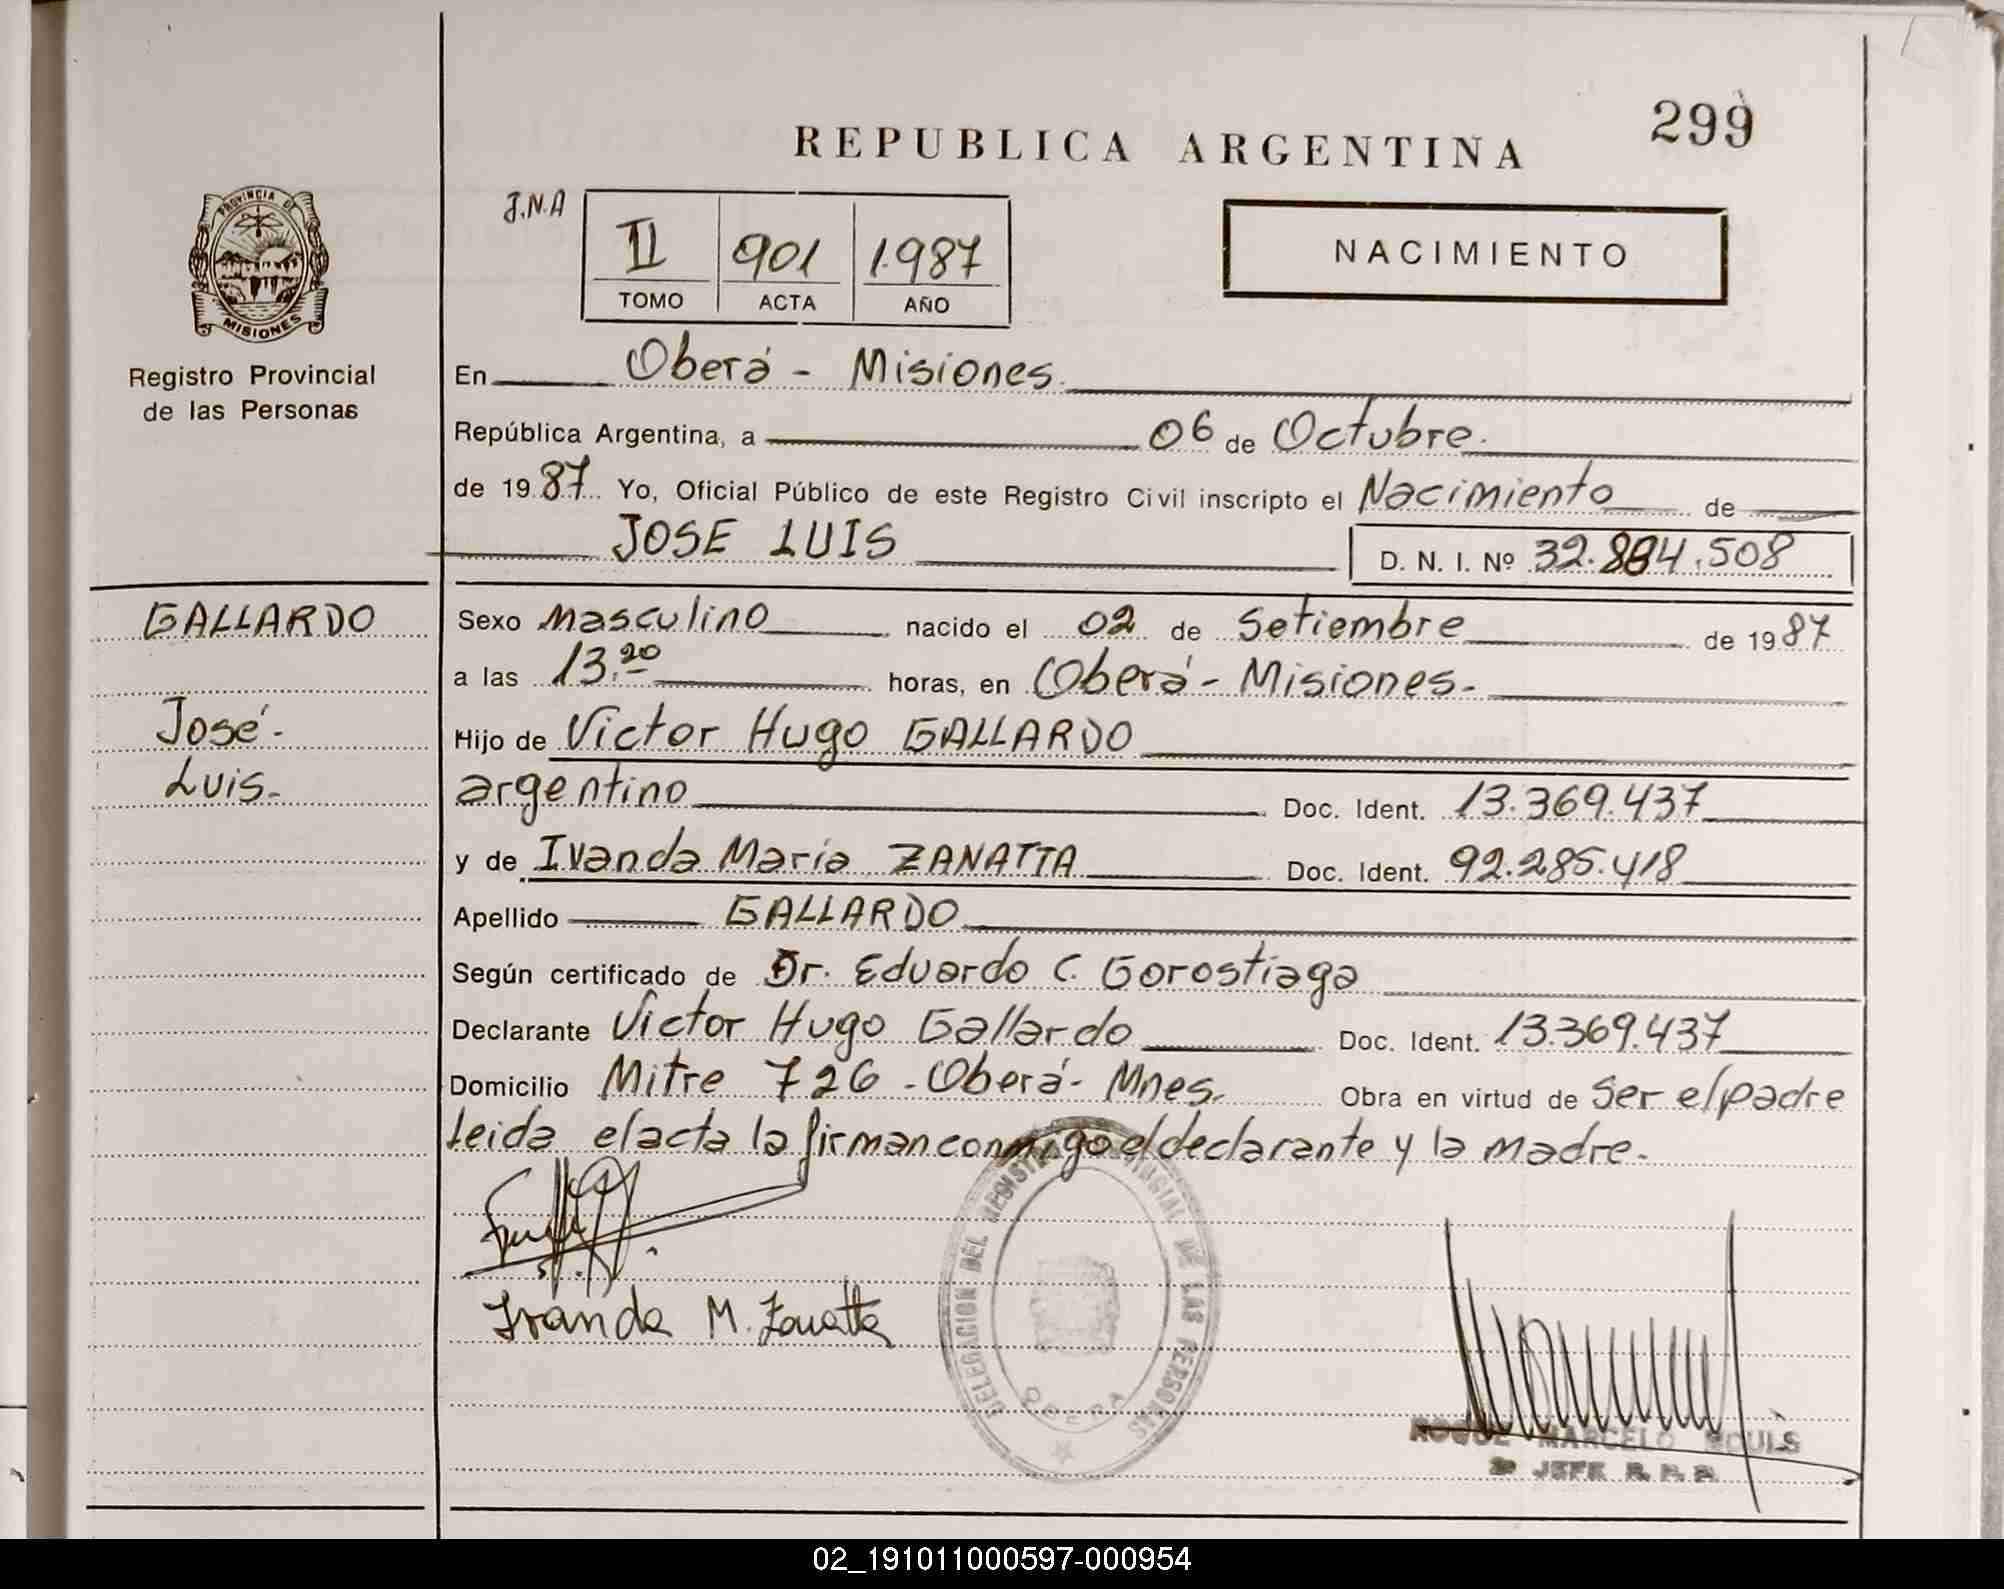 299
REPUBLICA ARGENTINA
PROVINCIA D
MISIONES
Registro Provincial
de las Personas
J.N.A
II 901 1.987
TOMO ACTA AÑO
NACIMIENTO
En Oberá - Misiones.
República Argentina, a 06 de Octubre.
de 1987 Yo, Oficial Público de este Registro Civil inscripto el Nacimiento de
JOSE LUIS D. N. I. Nº 32.884.508
GALLARDO
José.-
Luis.-
Sexo Masculino nacido el 02 de Setiembre de 1987
a las 13.20 horas, en Oberá - Misiones.-
Hijo de Victor Hugo GALLARDO
argentino Doc. Ident. 13.369.437
y de Ivanda Maria ZANATTA Doc. Ident. 92.285.418
Apellido GALLARDO
Según certificado de Dr. Eduardo C. Gorostiaga
Declarante Victor Hugo Gallardo Doc. Ident. 13.369.437
Domicilio Mitre 726 - Oberá - Mnes. Obra en virtud de ser el padre
Leida el acta la firman conmigo el declarante y la madre.-
DELEGACION DEL REGISTRO PROVINCIAL DE LAS PERSONAS
OBERA
Ivanda M. Zanatta
ROQUE MARCELO MOULS
2º JEFE R. P. P.
02_191011000597-000954